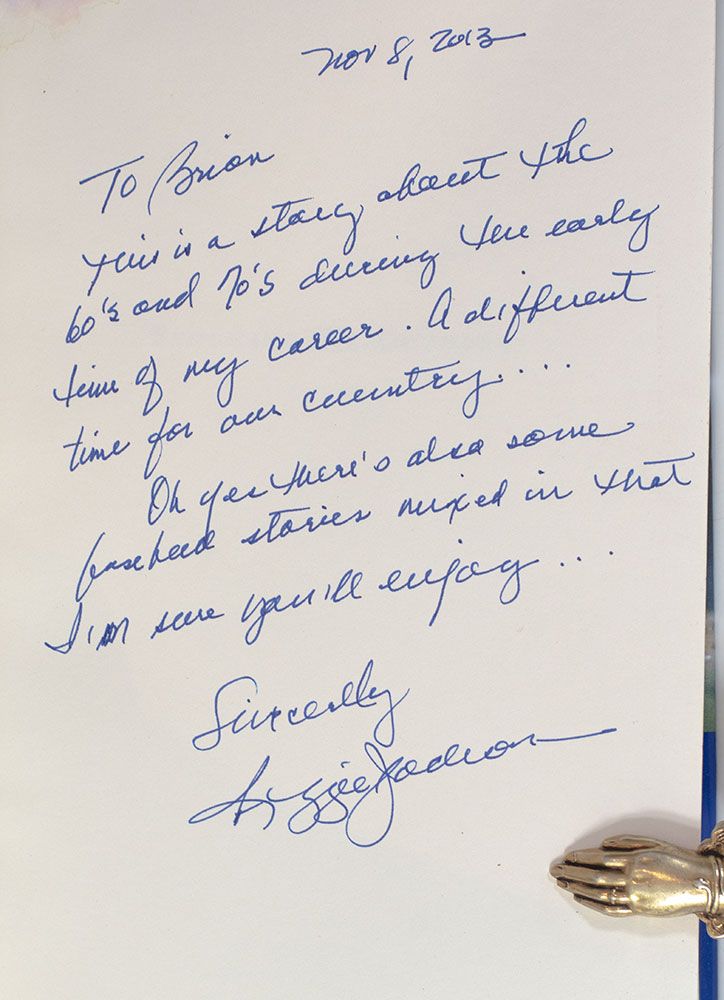 Nov 8, 2013
To Brian
This is a story about the
60's and 70's during the early
time of my career. A different
time for our country....
Oh yes there's also some
baseball stories mixed in that
I'm sure you'll enjoy....
Sincerely
Reggie Jackson